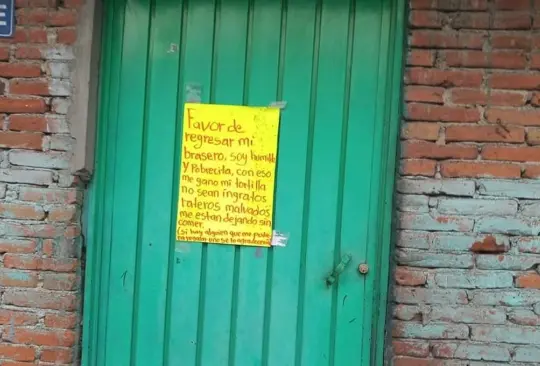 E
Favor de
regresar mi
brasero, soy humilde
y Pobrecita, con eso
me gano mi tortilla
no sean ingratos
rateros malvados
me estan dejando sin
comer.
(si hay alguien que me pueda
regalar uno se lo agradeceria)